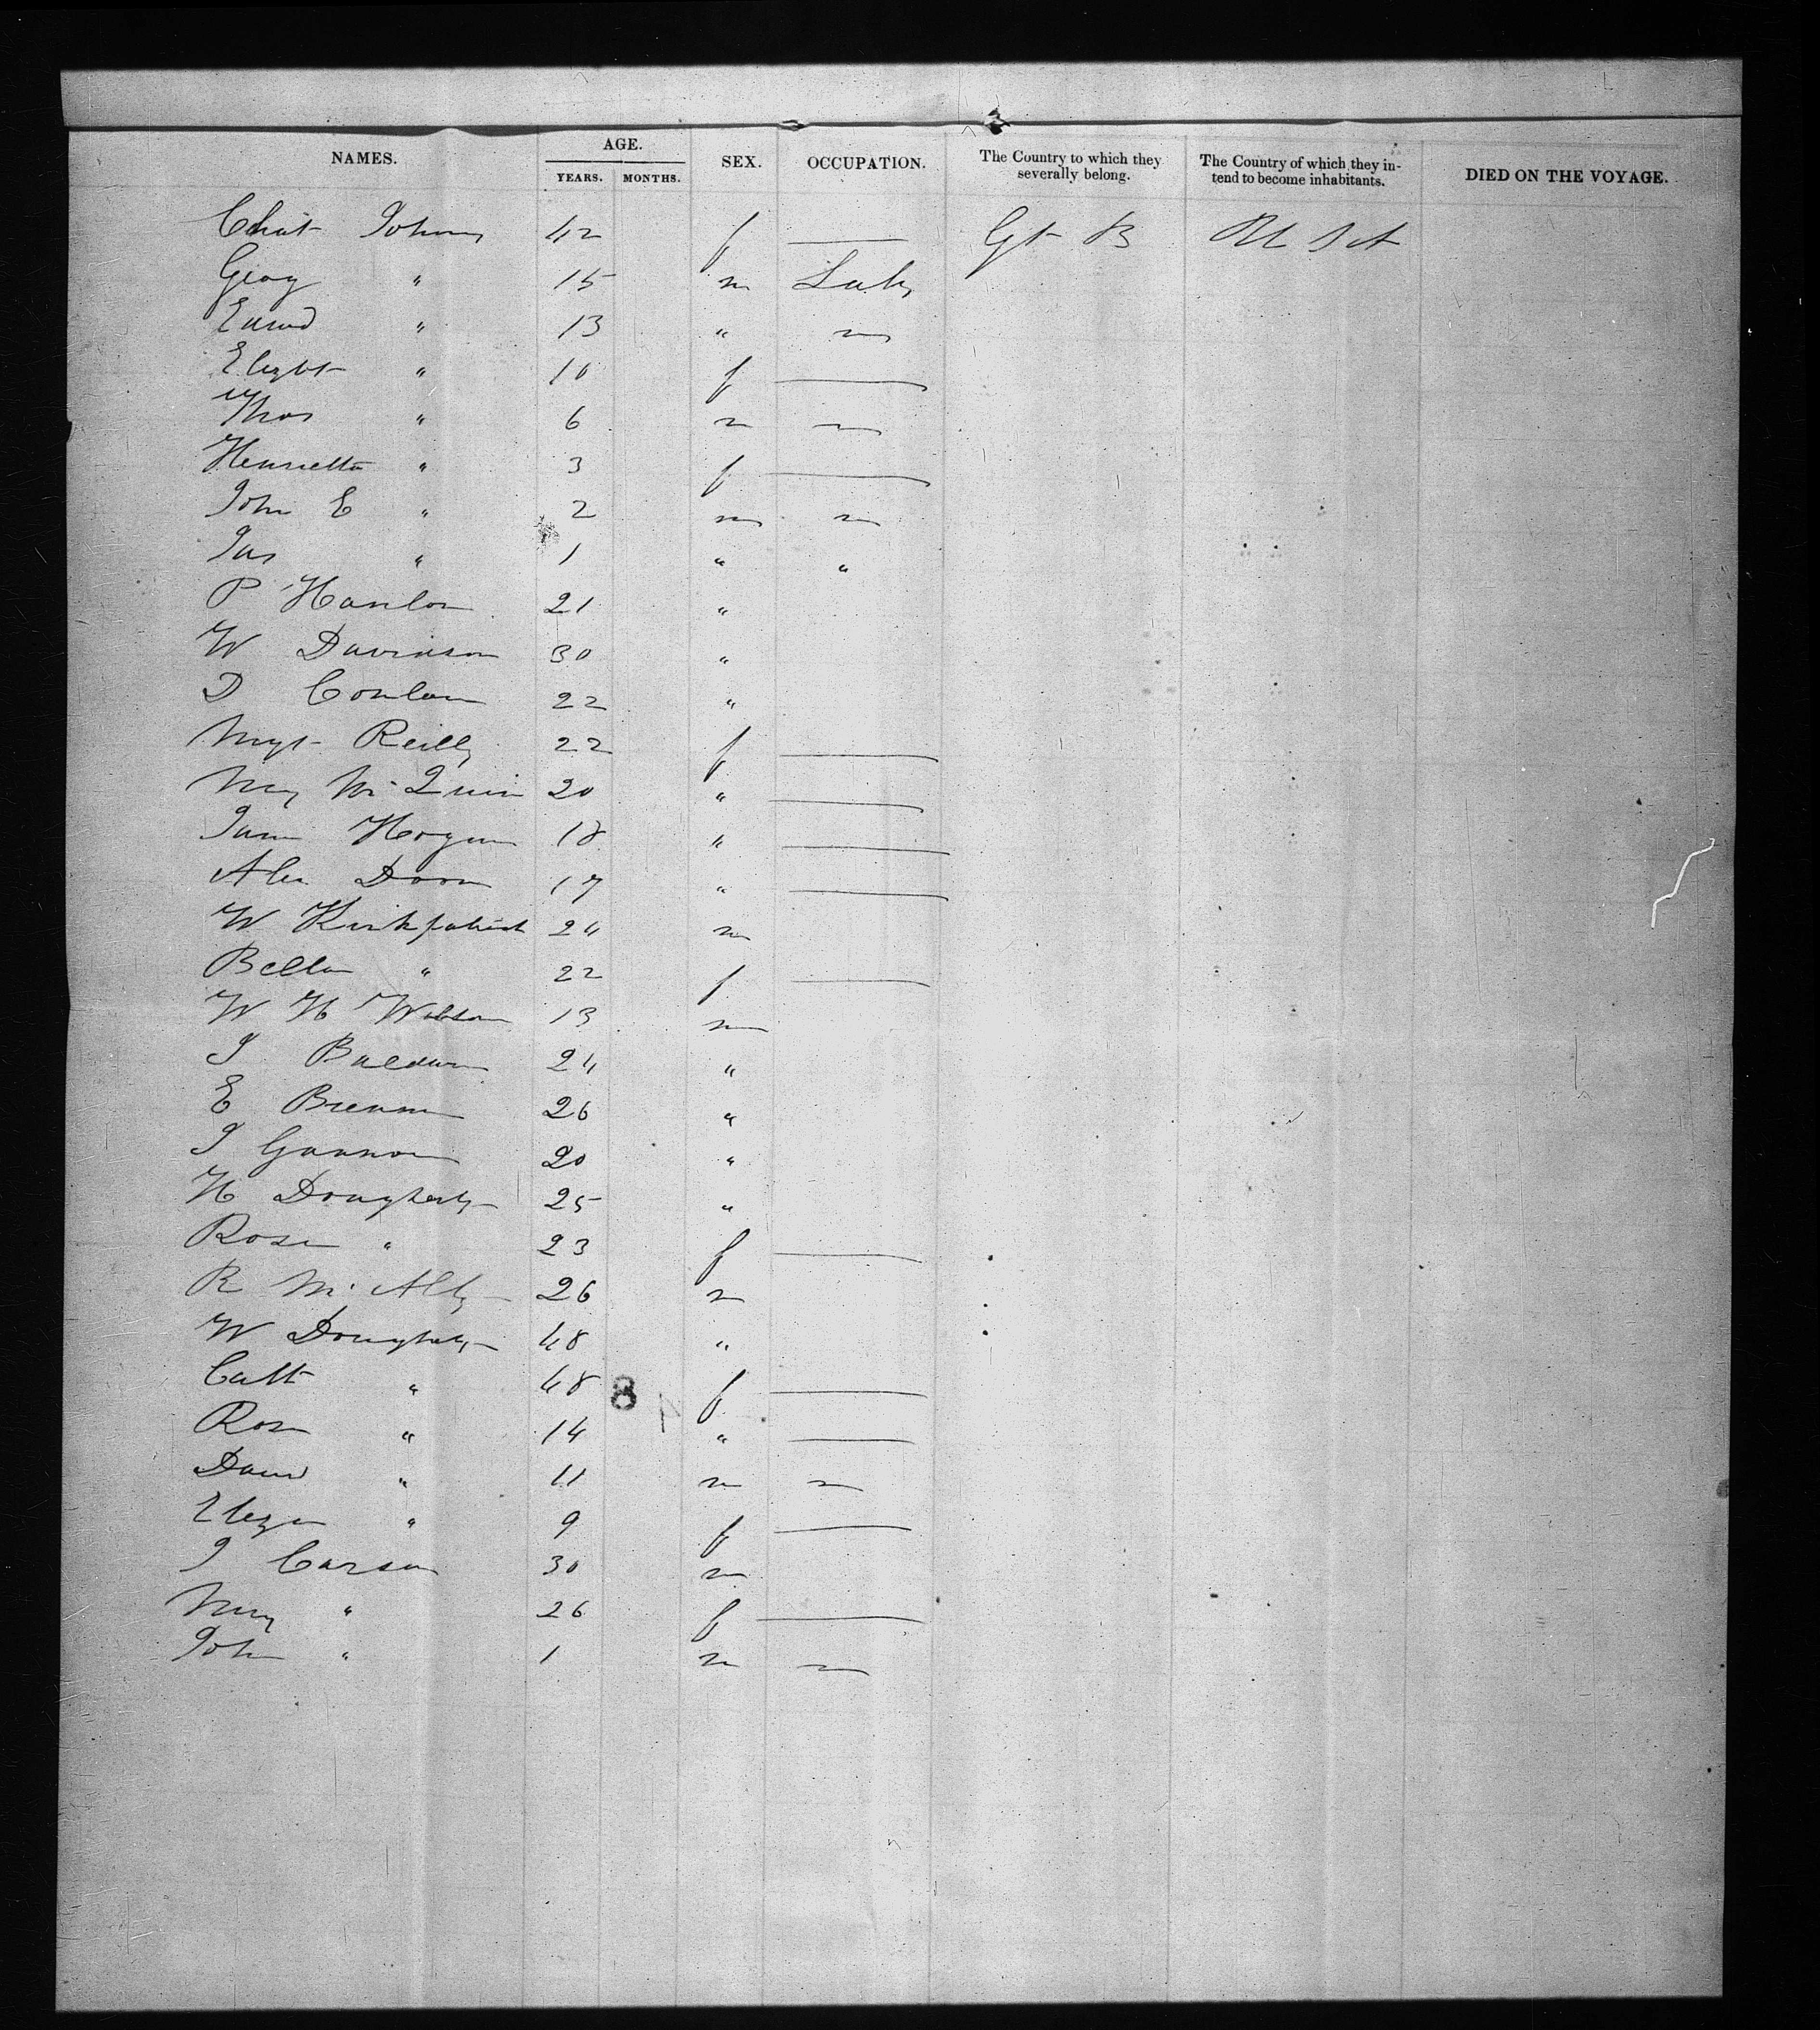 NAMES. AGE. YEARS. MONTHS. SEX. OCCUPATION. The Country to which they severally belong. The Country of which they intend to become inhabitants. DIED ON THE VOYAGE.
42 f — Gt B U S A
Geog " 15 m Lab
Edwd " 13 "
Elizbt " 10 f —
Thos " 6 m
Henrietta " 3 f —
John E " 2 m
Jas " 1 " "
P Hanlon 21 "
W Davidson 30 "
D Conlan 22 "
Mgt Reilly 22 f —
My Mc Quin 20 " —
Jane Hogan 18 " —
17 " —
W Kirkpatrick 24 m
Bella " 22 f —
W H Watson 13 m
J Baldwin 24 "
E Brennan 26 "
J Gannon 20 "
H Dougherty 25 "
Rose " 23 f —
R 26 m
W Dougherty 48 "
Cath " 48 f —
8
Rose " 14 " —
David " 11 m
Eliza " 9 f —
J Carson 30 m
Mary " 26 f —
John " 1 m